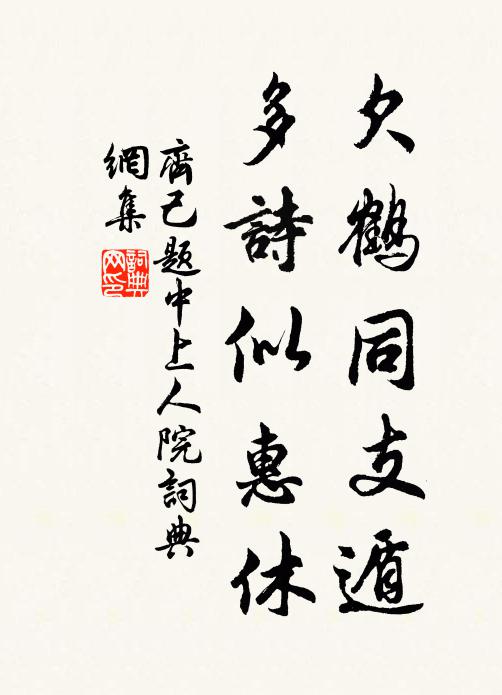 欠鶴同支遁
多詩似惠休
齊己題中上人院詞典
網集
詞典
网印